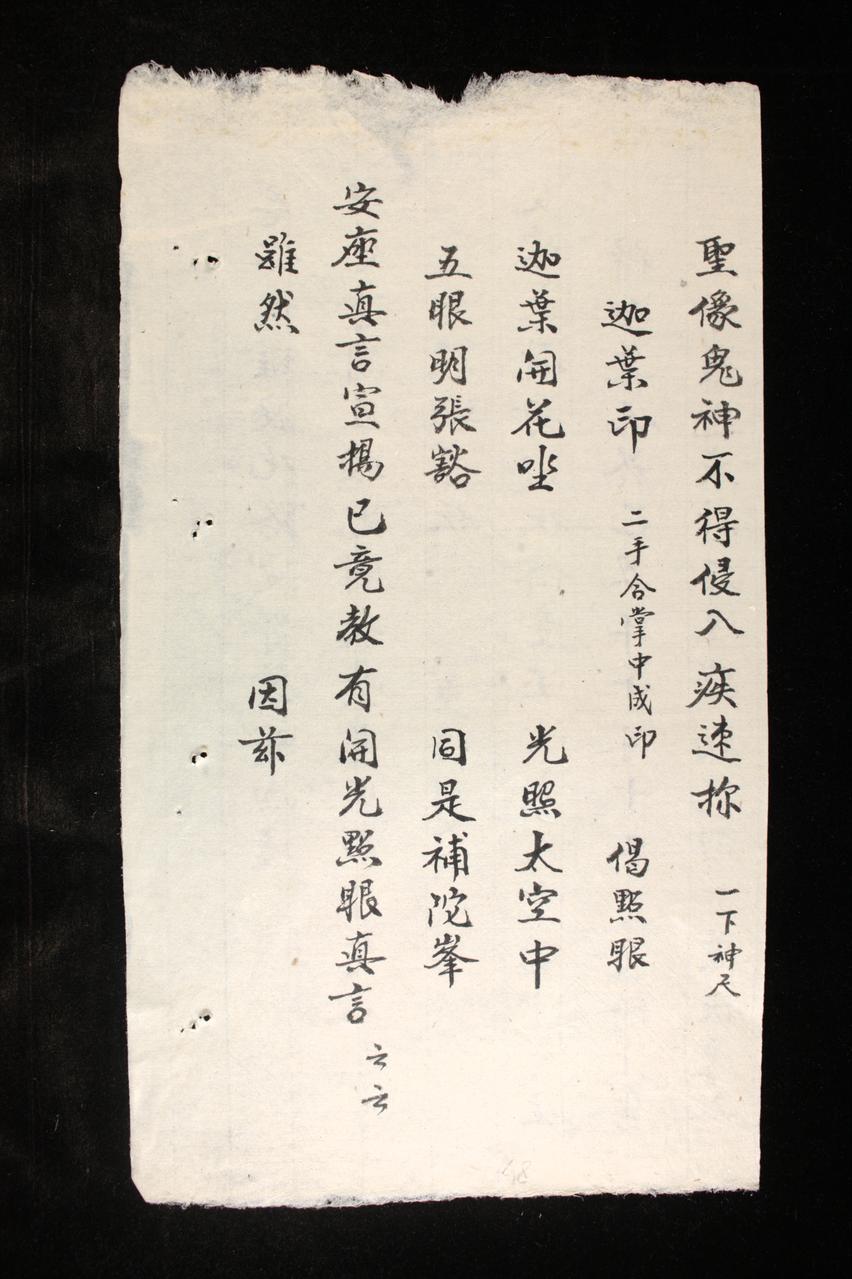 聖像鬼神不得侵入疾速 一下神尺
迦葉印 二手合掌中成印 偈點眼
迦葉開花坐 光照太空中
五眼明張豁 同是補陀峯
安座真言宣揚已竟教有開光點眼真言 云云
雖然 因茲